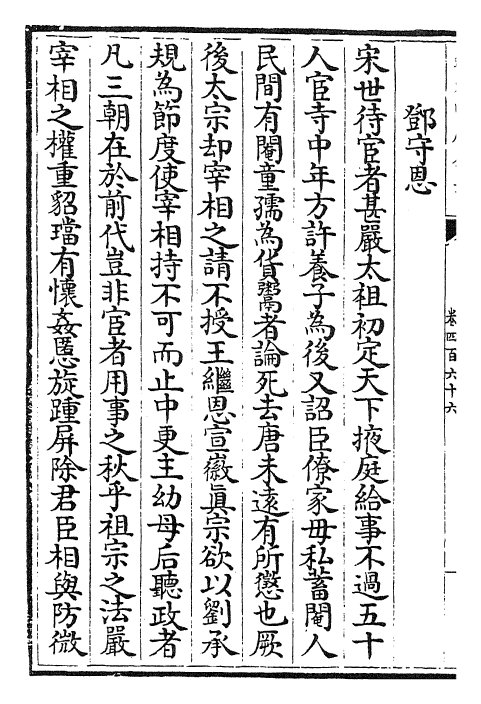 鄧守恩
宋世待宦者甚嚴太祖初定天下掖庭給事不過五十
人宦寺中年方許養子為後又詔臣僚家毋私蓄閹人
民間有閹童孺為貨鬻者論死去唐未遠有所懲也厥
後太宗却宰相之請不授王繼恩宣徽真宗欲以劉承
規為節度使宰相持不可而止中更主幼母后聽政者
凡三朝在於前代豈非宦者用事之秋乎祖宗之法嚴
宰相之權重貂璫有懷姦慝旋踵屏除君臣相與防微
卷四百六十六